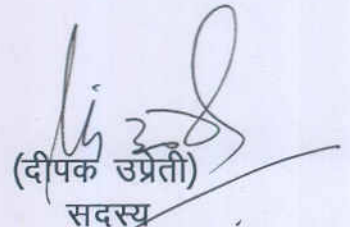 (दीपक उप्रेती)
सदस्य